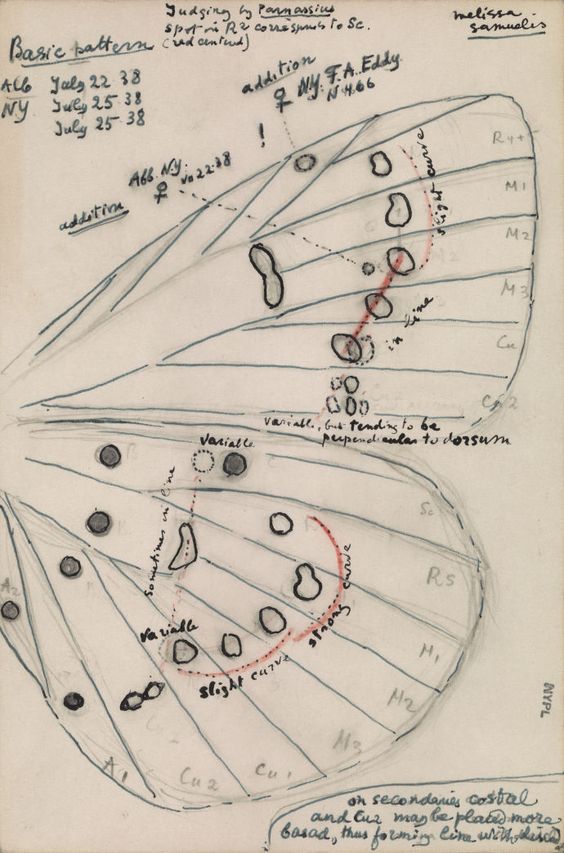 Judging by Parnassius
spot in R2 corresponds to Sc.
(red centred)
melissa
samuelis
Basic pattern
Alb July 22 38
NY July 25 38
July 25 38
addition
♀ NY. F. A. Eddy
!
Alb. N.Y.
♀ VII 22 38
addition
slight curve
R4+5
M1
M2
M3
Cu
Cu2
in line
variable, but tending to be
perpendicular to dorsum
variable
sometimes in line
Sc
R5
M1
M2
M3
Cu1
Cu2
A1
A2
strong curve
slight curve
variable
NYPL
on secondaries costal
and Cu2 may be placed more
basad, thus forming line with discal